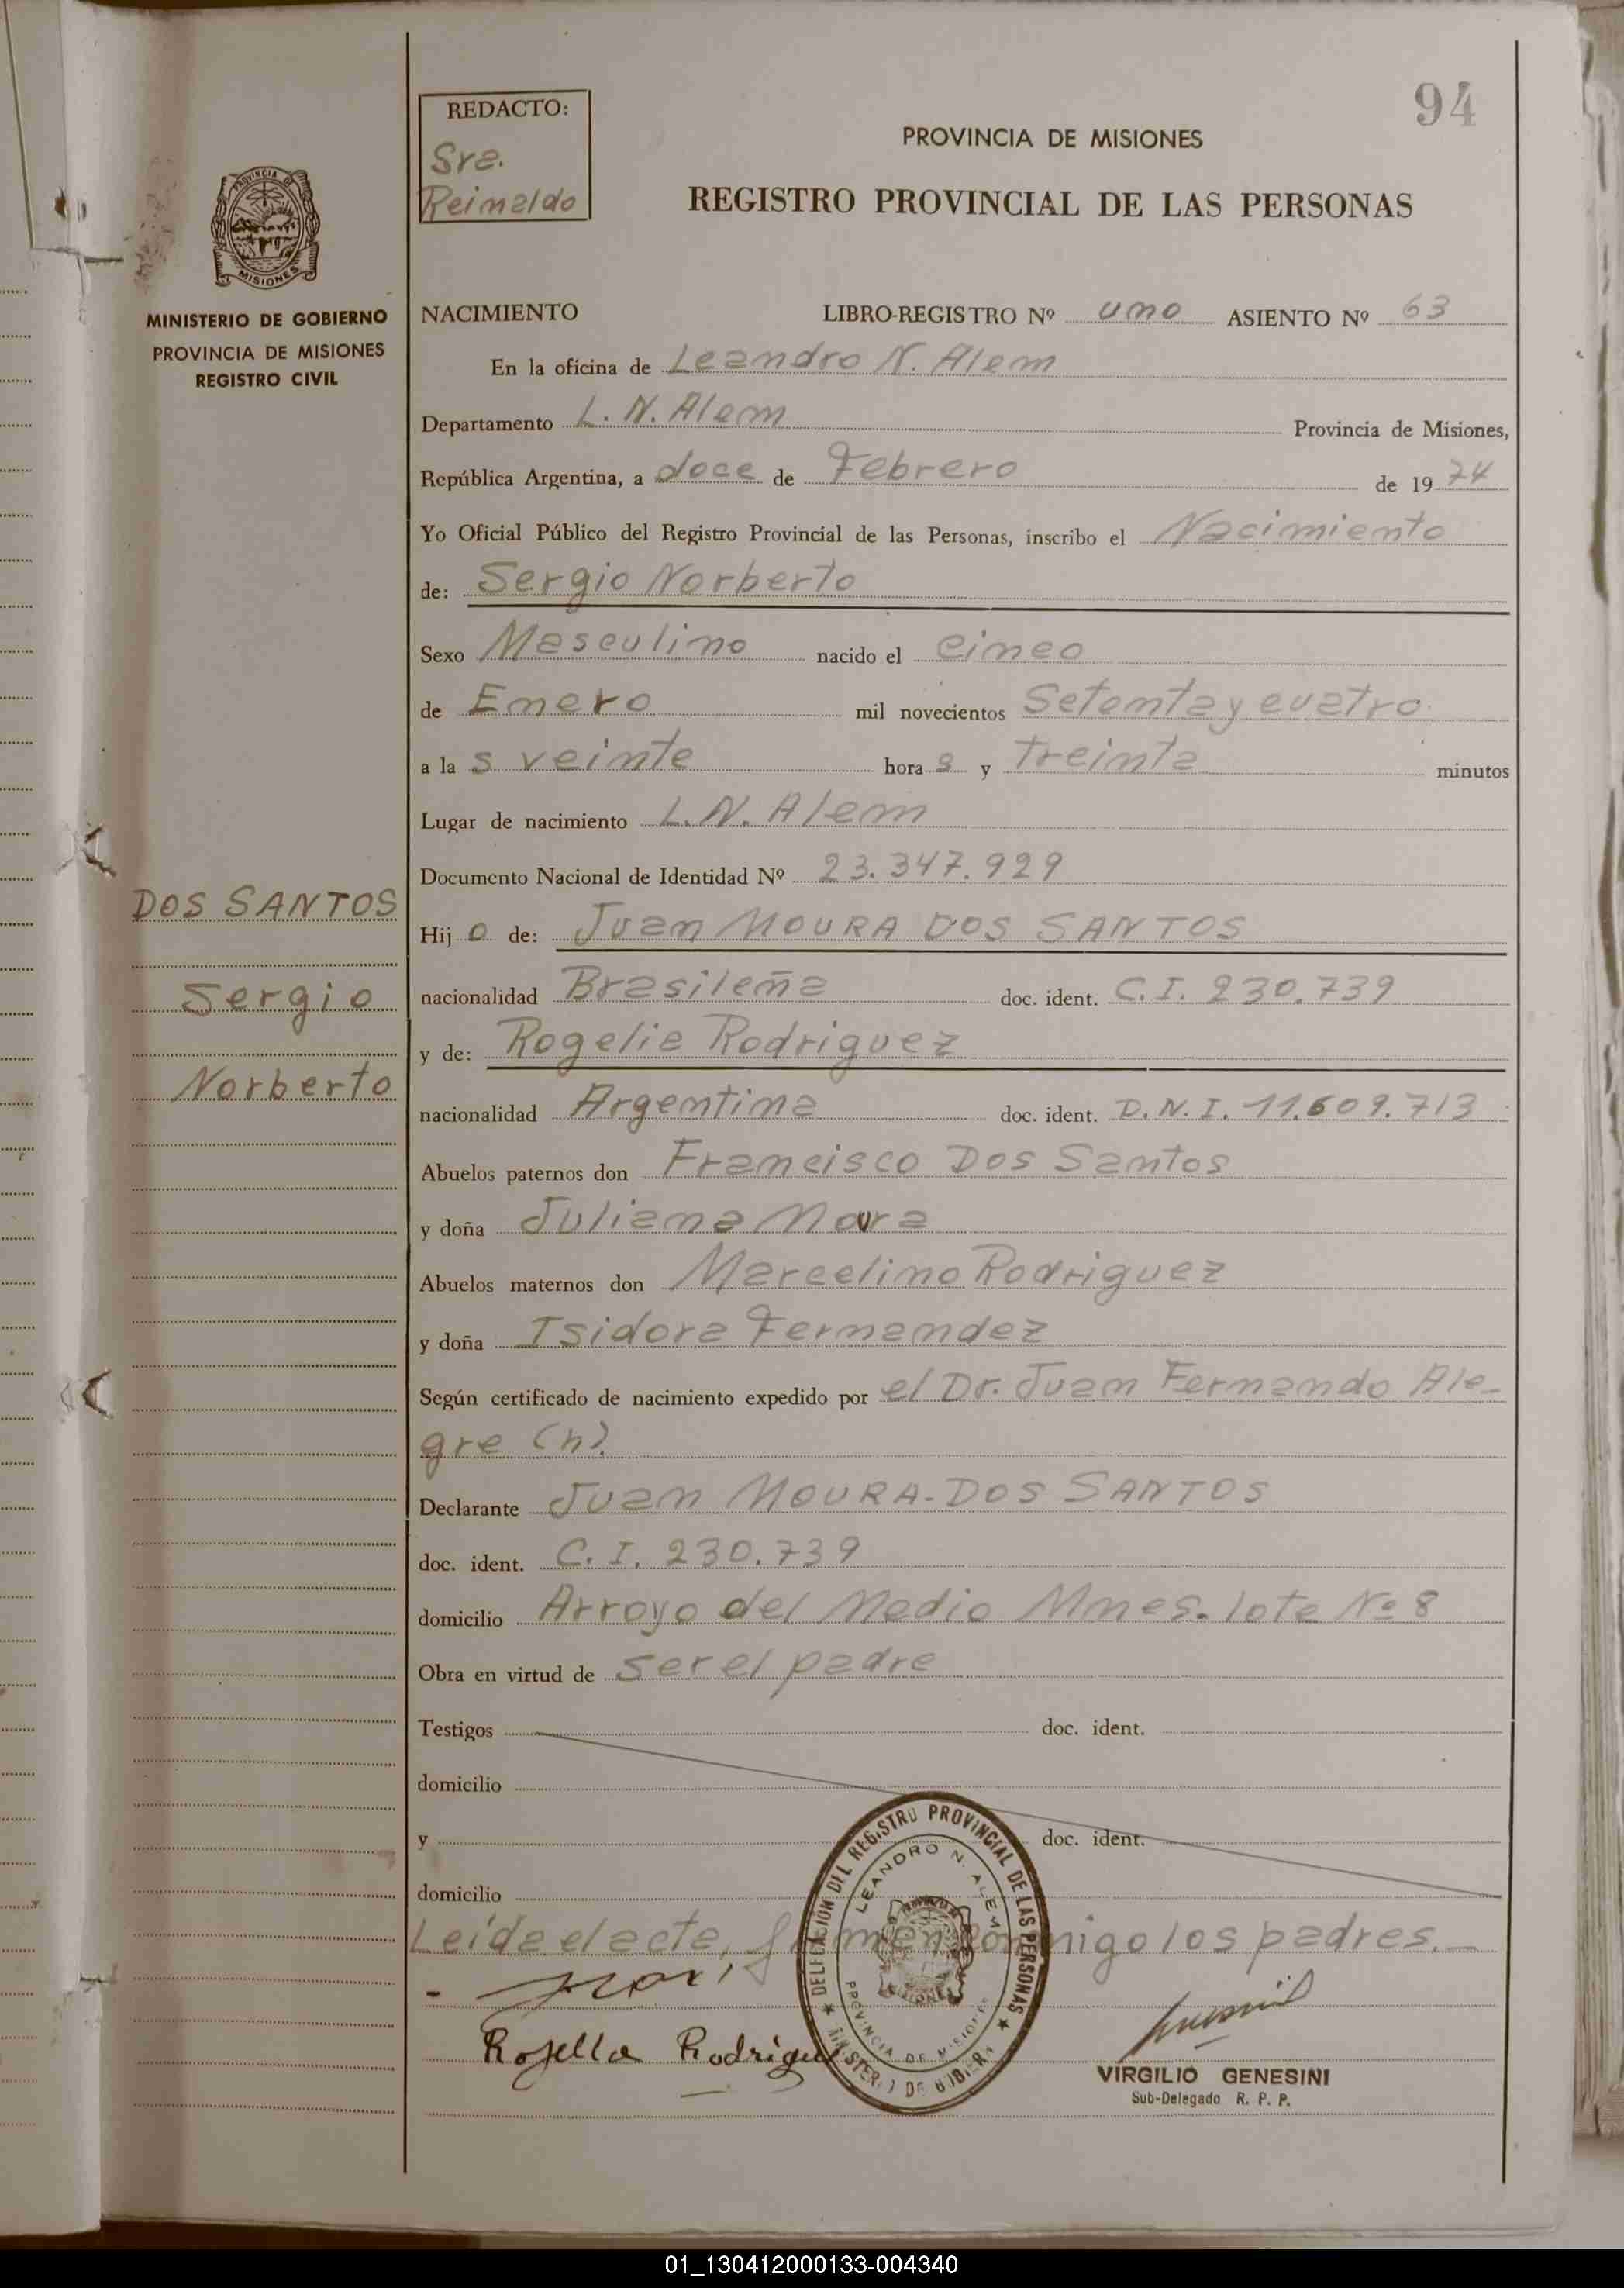 94
REDACTO:
Sra.
Reinaldo
PROVINCIA DE MISIONES
REGISTRO PROVINCIAL DE LAS PERSONAS
PROVINCIA DE
MISIONES
MINISTERIO DE GOBIERNO
PROVINCIA DE MISIONES
REGISTRO CIVIL
NACIMIENTO LIBRO-REGISTRO Nº uno ASIENTO Nº 63
En la oficina de Leandro N. Alem
Departamento L. N. Alem Provincia de Misiones,
República Argentina, a doce de Febrero de 19 74
Yo Oficial Público del Registro Provincial de las Personas, inscribo el Nacimiento
de: Sergio Norberto
Sexo Masculino nacido el cinco
de Enero mil novecientos Setenta y cuatro
a la s veinte hora s y treinta minutos
Lugar de nacimiento L. N. Alem
Documento Nacional de Identidad Nº 23.347.929
DOS SANTOS
Sergio
Norberto
Hij o de: Juan MOURA DOS SANTOS
nacionalidad Brasileña doc. ident. C.I. 230.739
y de: Rogelia Rodriguez
nacionalidad Argentina doc. ident. D.N.I. 11.609.713
Abuelos paternos don Francisco Dos Santos
y doña Juliana
Abuelos maternos don Marcelino Rodriguez
y doña Isidora Fernandez
Según certificado de nacimiento expedido por el Dr. Juan Fernando Ale-
gre (h).
Declarante Juan MOURA-DOS SANTOS
doc. ident. C.I. 230.739
domicilio Arroyo del Medio Mnes. lote Nº 8
Obra en virtud de ser el padre
Testigos doc. ident.
domicilio
y doc. ident.
domicilio
Leída el acta, firman conmigo los padres.-
Rosella Rodrigue
DELEGACION DEL REGISTRO PROVINCIAL DE LAS PERSONAS
MINISTERIO DE GOBIERNO
LEANDRO N. ALEM
PROVINCIA DE MISIONES
VIRGILIO GENESINI
Sub-Delegado R. P. P.
01_130412000133-004340